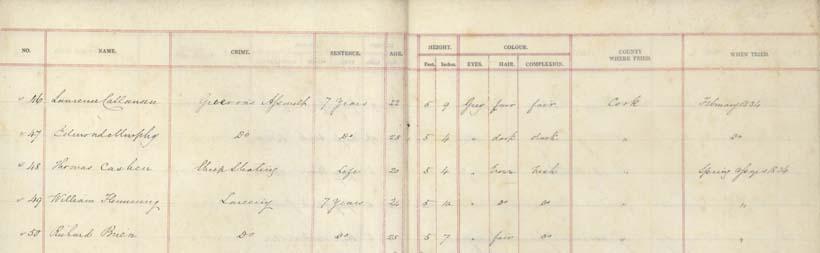 NO. NAME. CRIME. SENTENCE. AGE. HEIGHT. COLOUR. COUNTY WHERE TRIED. WHEN TRIED.
Feet. Inches. EYES. HAIR. COMPLEXION.
46 Laurence Callanan Grievous Assault 7 Years 22 5 9 Grey fair fair Cork February 1834
47 Edmond Murphy Do Do 28 5 4 " dark dark " Do
48 Thomas Cashen Sheep Stealing Life 20 5 4 " brown fresh " Spring 1834
49 William Flemming Larceny 7 Years 24 5 " Do Do " "
50 Richard Do Do 25 5 7 " fair Do " "